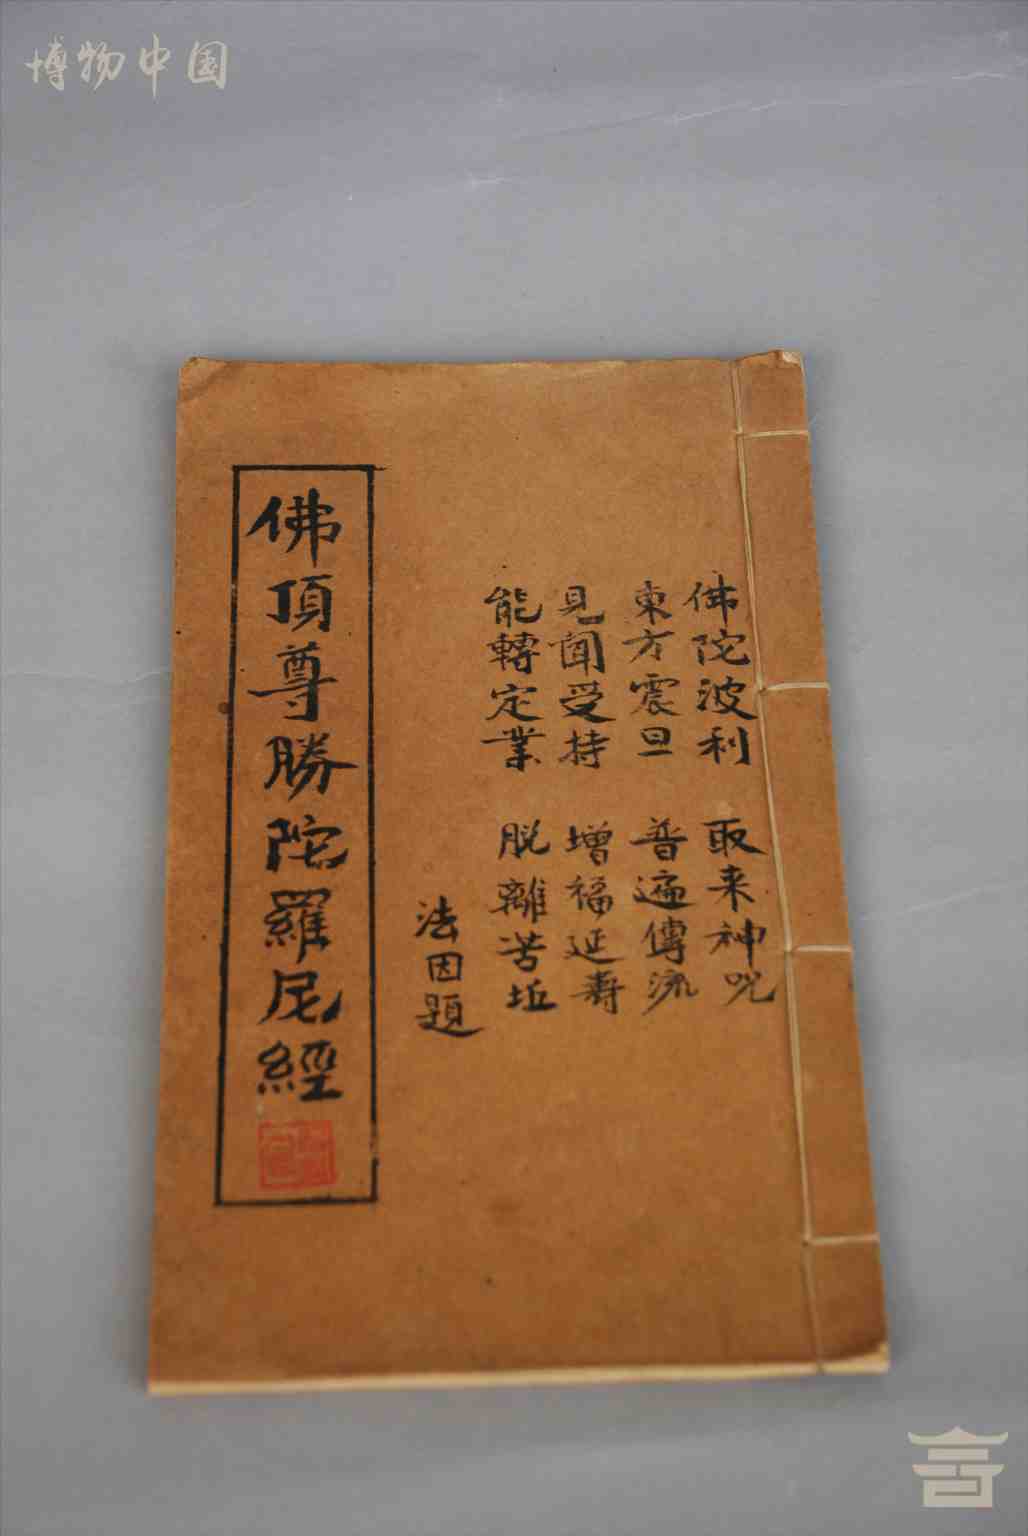 博物中国
佛陀波利 取来神咒
東方震旦 普遍傳流
見聞受持 增福延壽
能轉定業 脱離苦坵
法因題
佛頂尊勝陀羅尼經